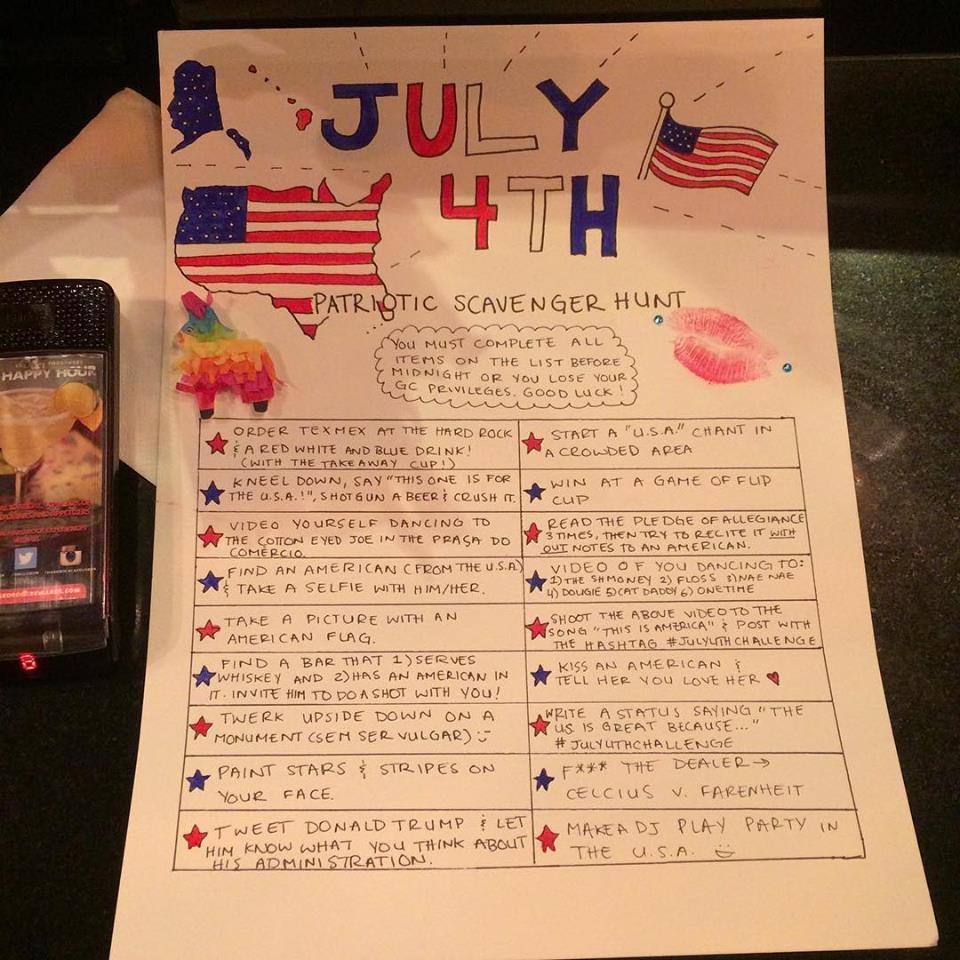 JULY
4TH
PATRIOTIC SCAVENGER HUNT
YOU MUST COMPLETE ALL
ITEMS ON THE LIST BEFORE
MIDNIGHT OR YOU LOSE YOUR
GC PRIVILEGES. GOOD LUCK!
ORDER TEXMEX AT THE HARD ROCK
& A RED WHITE AND BLUE DRINK!
(WITH THE TAKEAWAY CUP!)
START A "U.S.A." CHANT IN
A CROWDED AREA
KNEEL DOWN, SAY "THIS ONE IS FOR
THE U.S.A.!", SHOTGUN A BEER & CRUSH IT.
WIN AT A GAME OF FLIP
CUP
VIDEO YOURSELF DANCING TO
THE COTTON EYED JOE IN THE PRAÇA DO
COMÉRCIO.
READ THE PLEDGE OF ALLEGIANCE
3 TIMES, THEN TRY TO RECITE IT WITH
OUT NOTES TO AN AMERICAN.
FIND AN AMERICAN (FROM THE U.S.A)
& TAKE A SELFIE WITH HIM/HER.
VIDEO OF YOU DANCING TO:
1) THE SHMONEY 2) FLOSS 3) NAE NAE
4) DOUGIE 5) CAT DADDY 6) ONE TIME
TAKE A PICTURE WITH AN
AMERICAN FLAG.
SHOOT THE ABOVE VIDEO TO THE
SONG "THIS IS AMERICA" & POST WITH
THE HASHTAG #JULY4THCHALLENGE
FIND A BAR THAT 1) SERVES
WHISKEY AND 2) HAS AN AMERICAN IN
IT. INVITE HIM TO DO A SHOT WITH YOU!
KISS AN AMERICAN &
TELL HER YOU LOVE HER
TWERK UPSIDE DOWN ON A
MONUMENT (SEM SER VULGAR)
WRITE A STATUS SAYING "THE
US IS GREAT BECAUSE..."
#JULY4THCHALLENGE
PAINT STARS & STRIPES ON
YOUR FACE.
F*** THE DEALER →
CELCIUS V. FARENHEIT
TWEET DONALD TRUMP & LET
HIM KNOW WHAT YOU THINK ABOUT
HIS ADMINISTRATION.
MAKE A DJ PLAY PARTY IN
THE U.S.A.
HAPPY HOUR